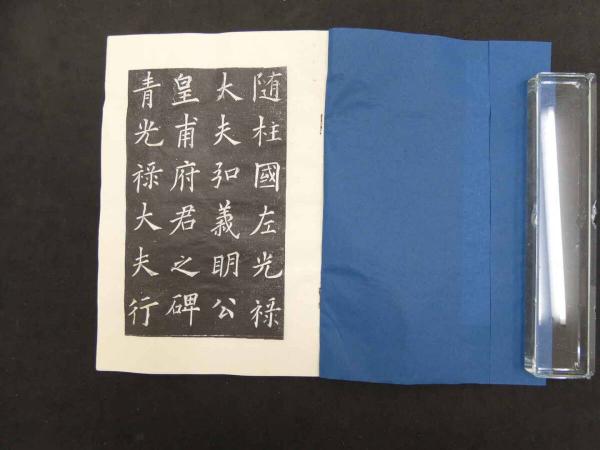 随柱國左光禄
大夫弘義明公
皇甫府君之碑
青光禄大夫行